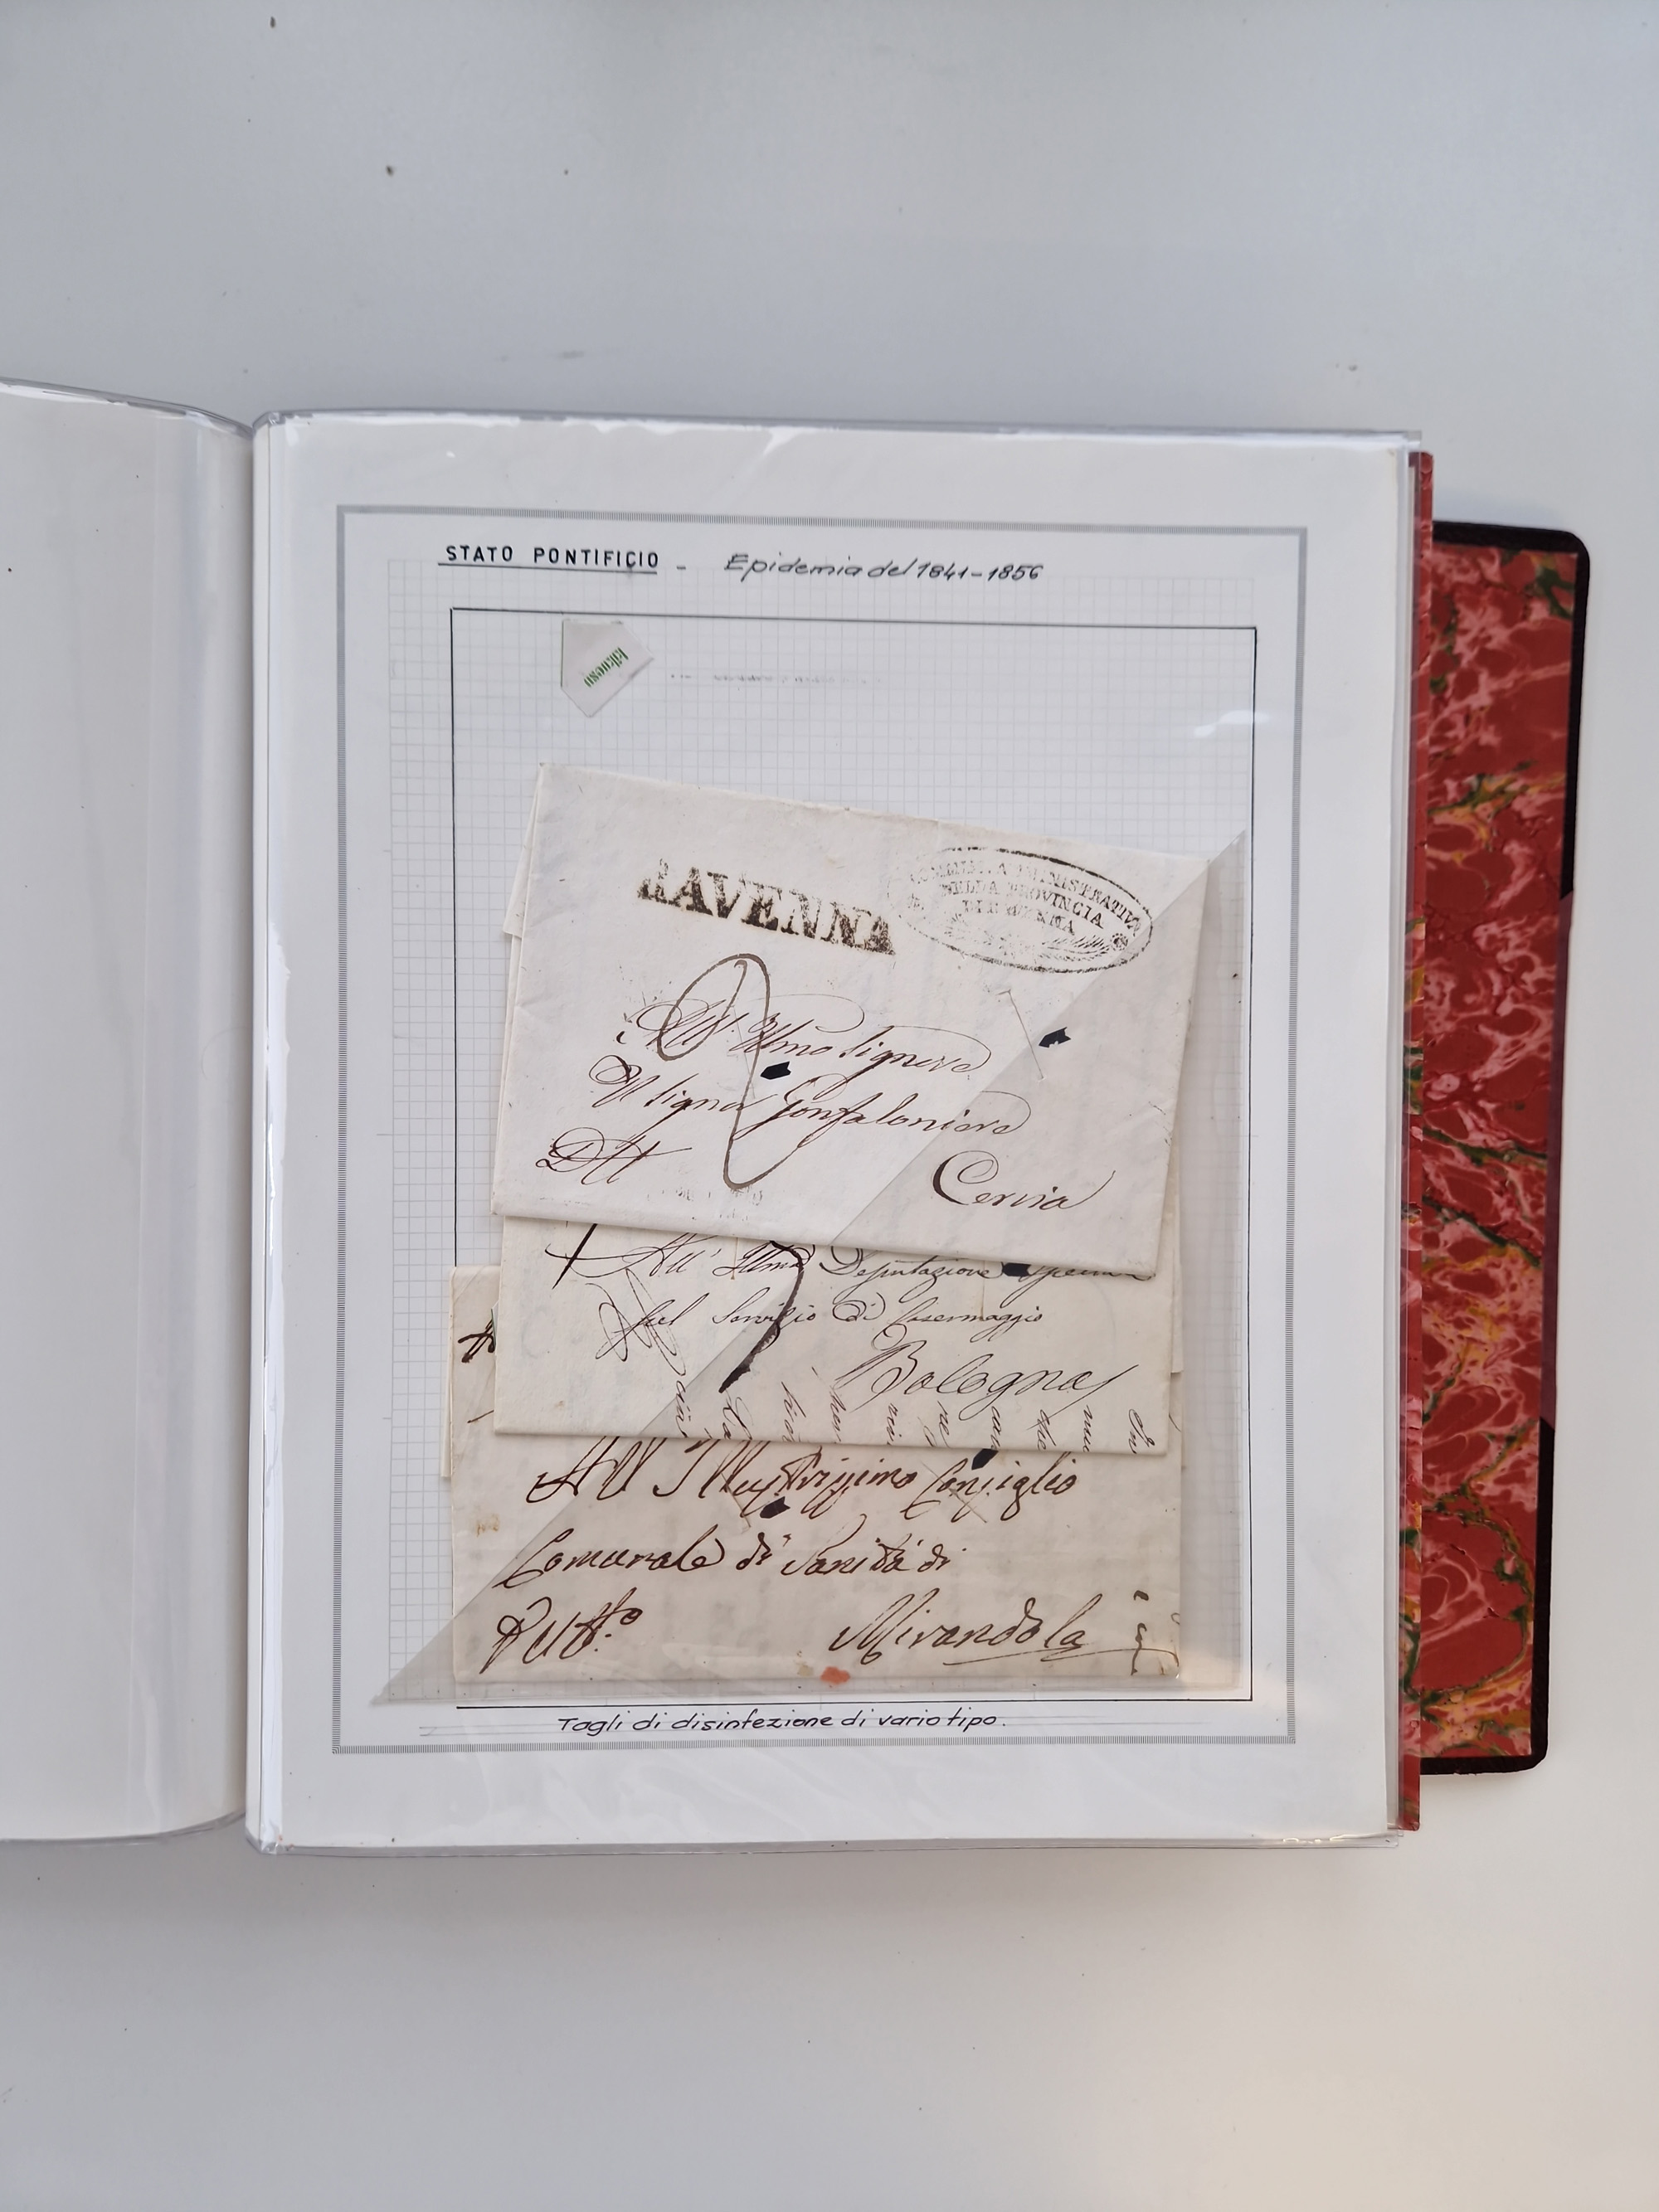 STATO PONTIFICIO - Epidemia del 1841-1856
RAVENNA
AMMINISTRATIVA
DELLA PROVINCIA
DI RAVENNA
All' Illmo Signore
Il Signor Gonfaloniere
Cervia
All' Illma Deputazione
pel Servizio di Casermaggio
Bologna
All' Illustrissimo Consiglio
Comunale di Sanità di
Mirandola
Tagli di disinfezione di vario tipo.